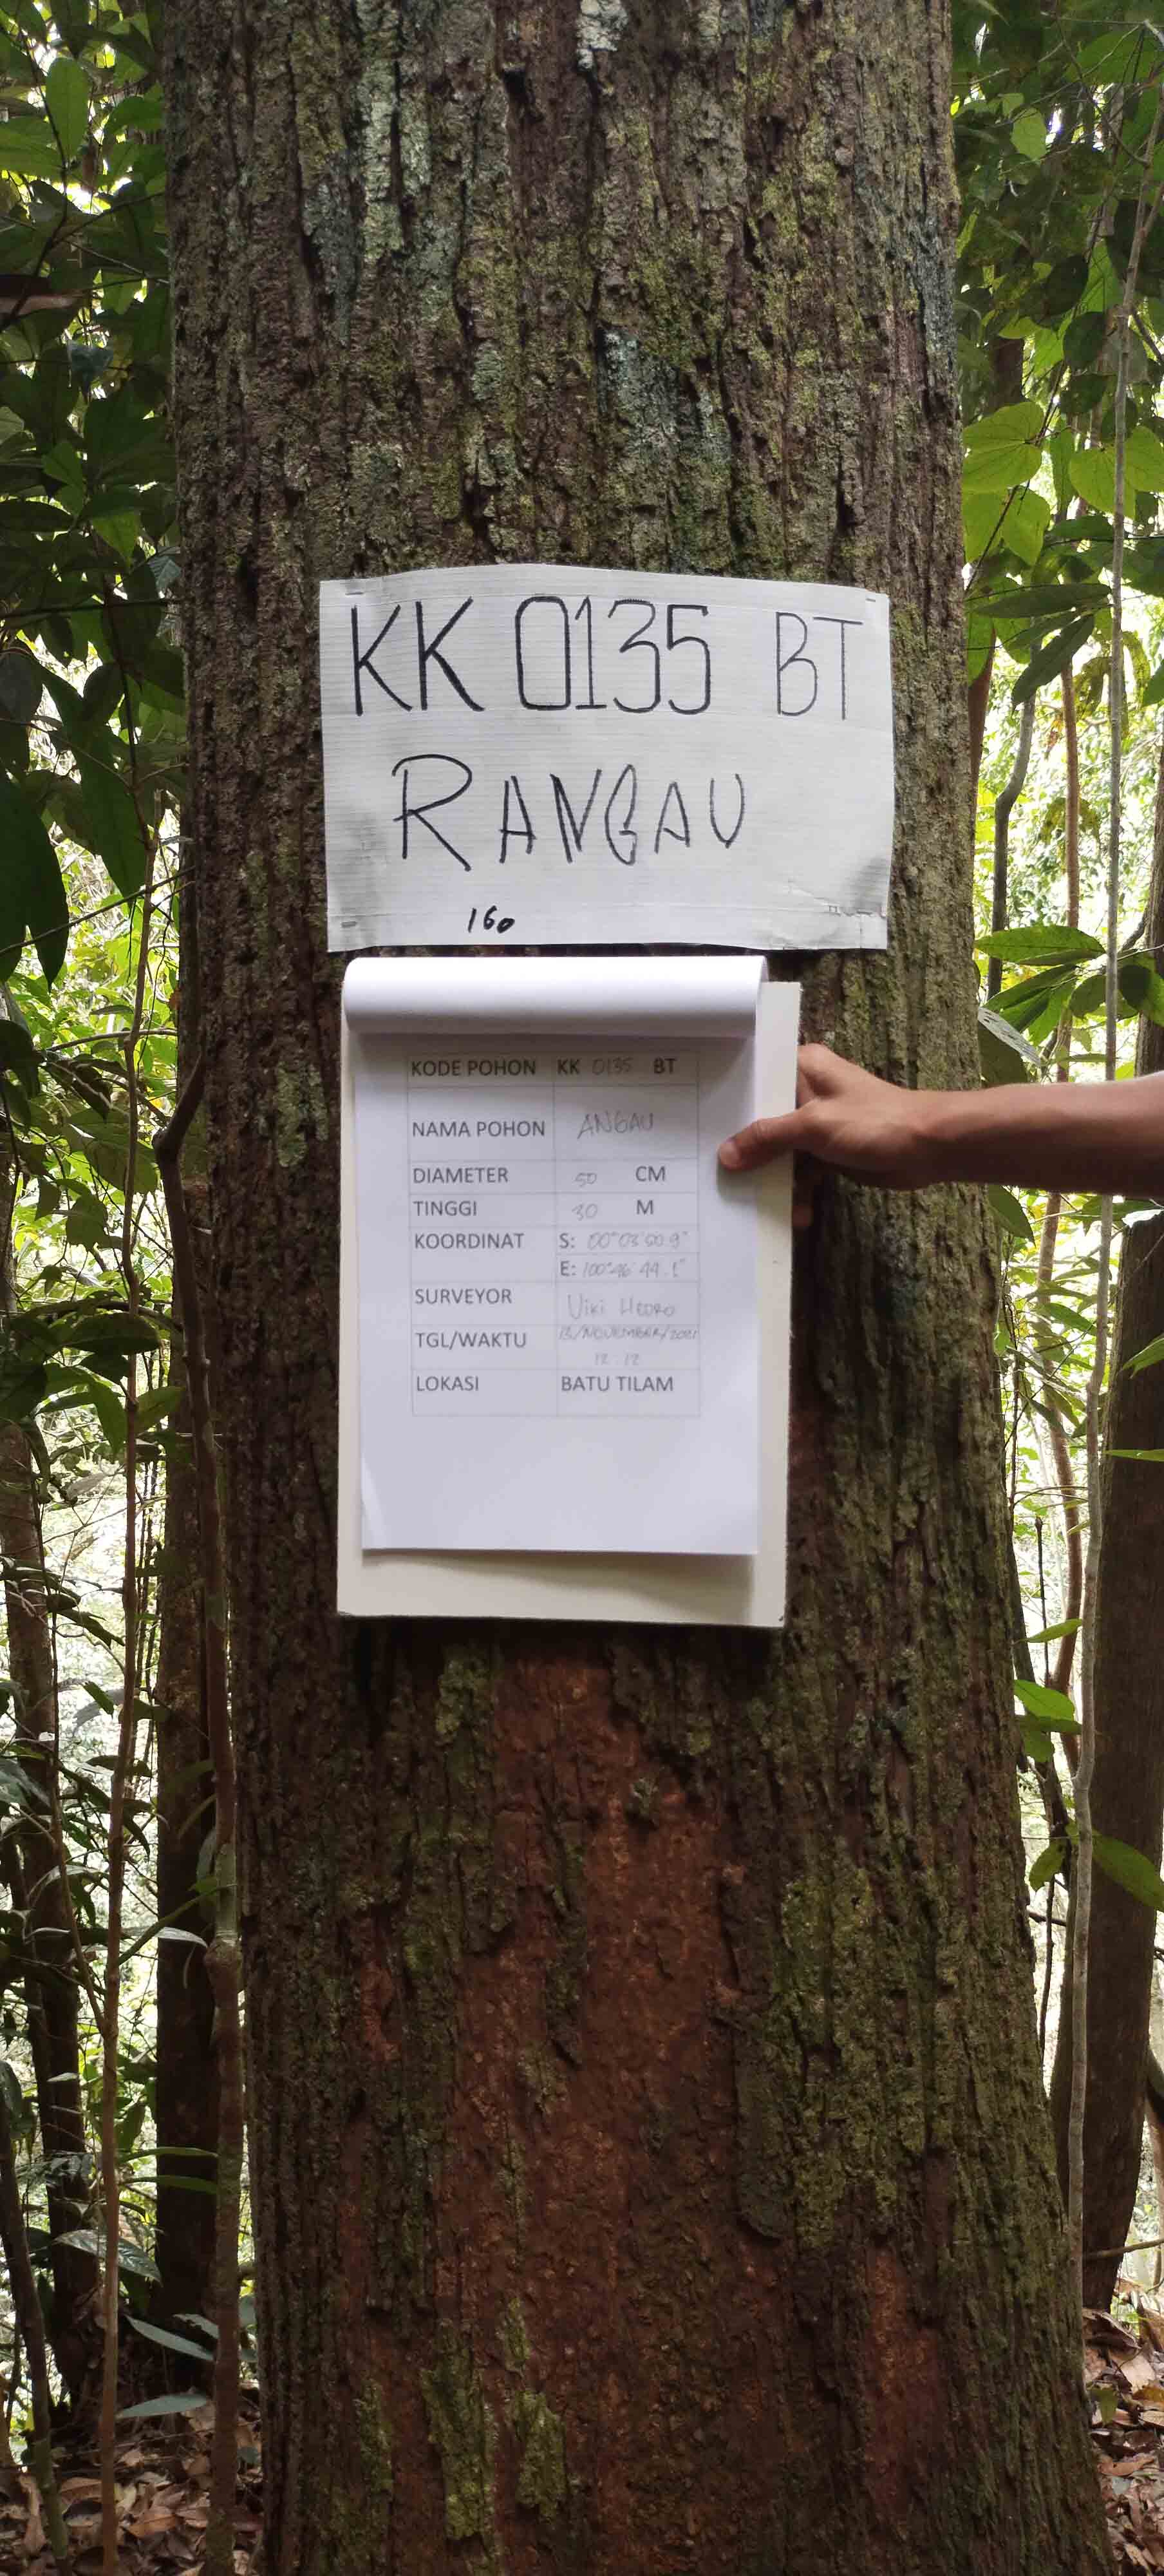 KK 0135 BT
RANGAU
160
KODE POHON KK 0135 BT
NAMA POHON ANGAU
DIAMETER 50 CM
TINGGI 30 M
KOORDINAT S: 00°03'00.9"
E: 100°46'49.1"
SURVEYOR Viki Hedro
TGL/WAKTU 13/NOVEMBER/2021
12 12
LOKASI BATU TILAM